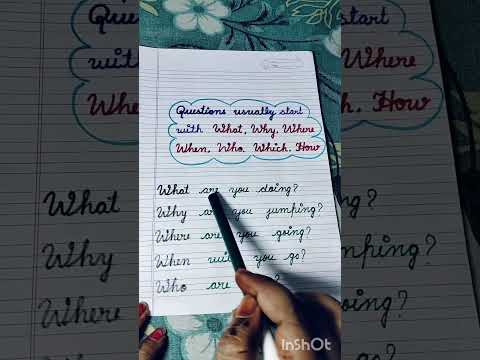 Questions usually start
with What, Why, Where
When, Who, Which, How
What are you doing?
Why are you jumping?
Where are you going?
When will you go?
Who are
InShOt